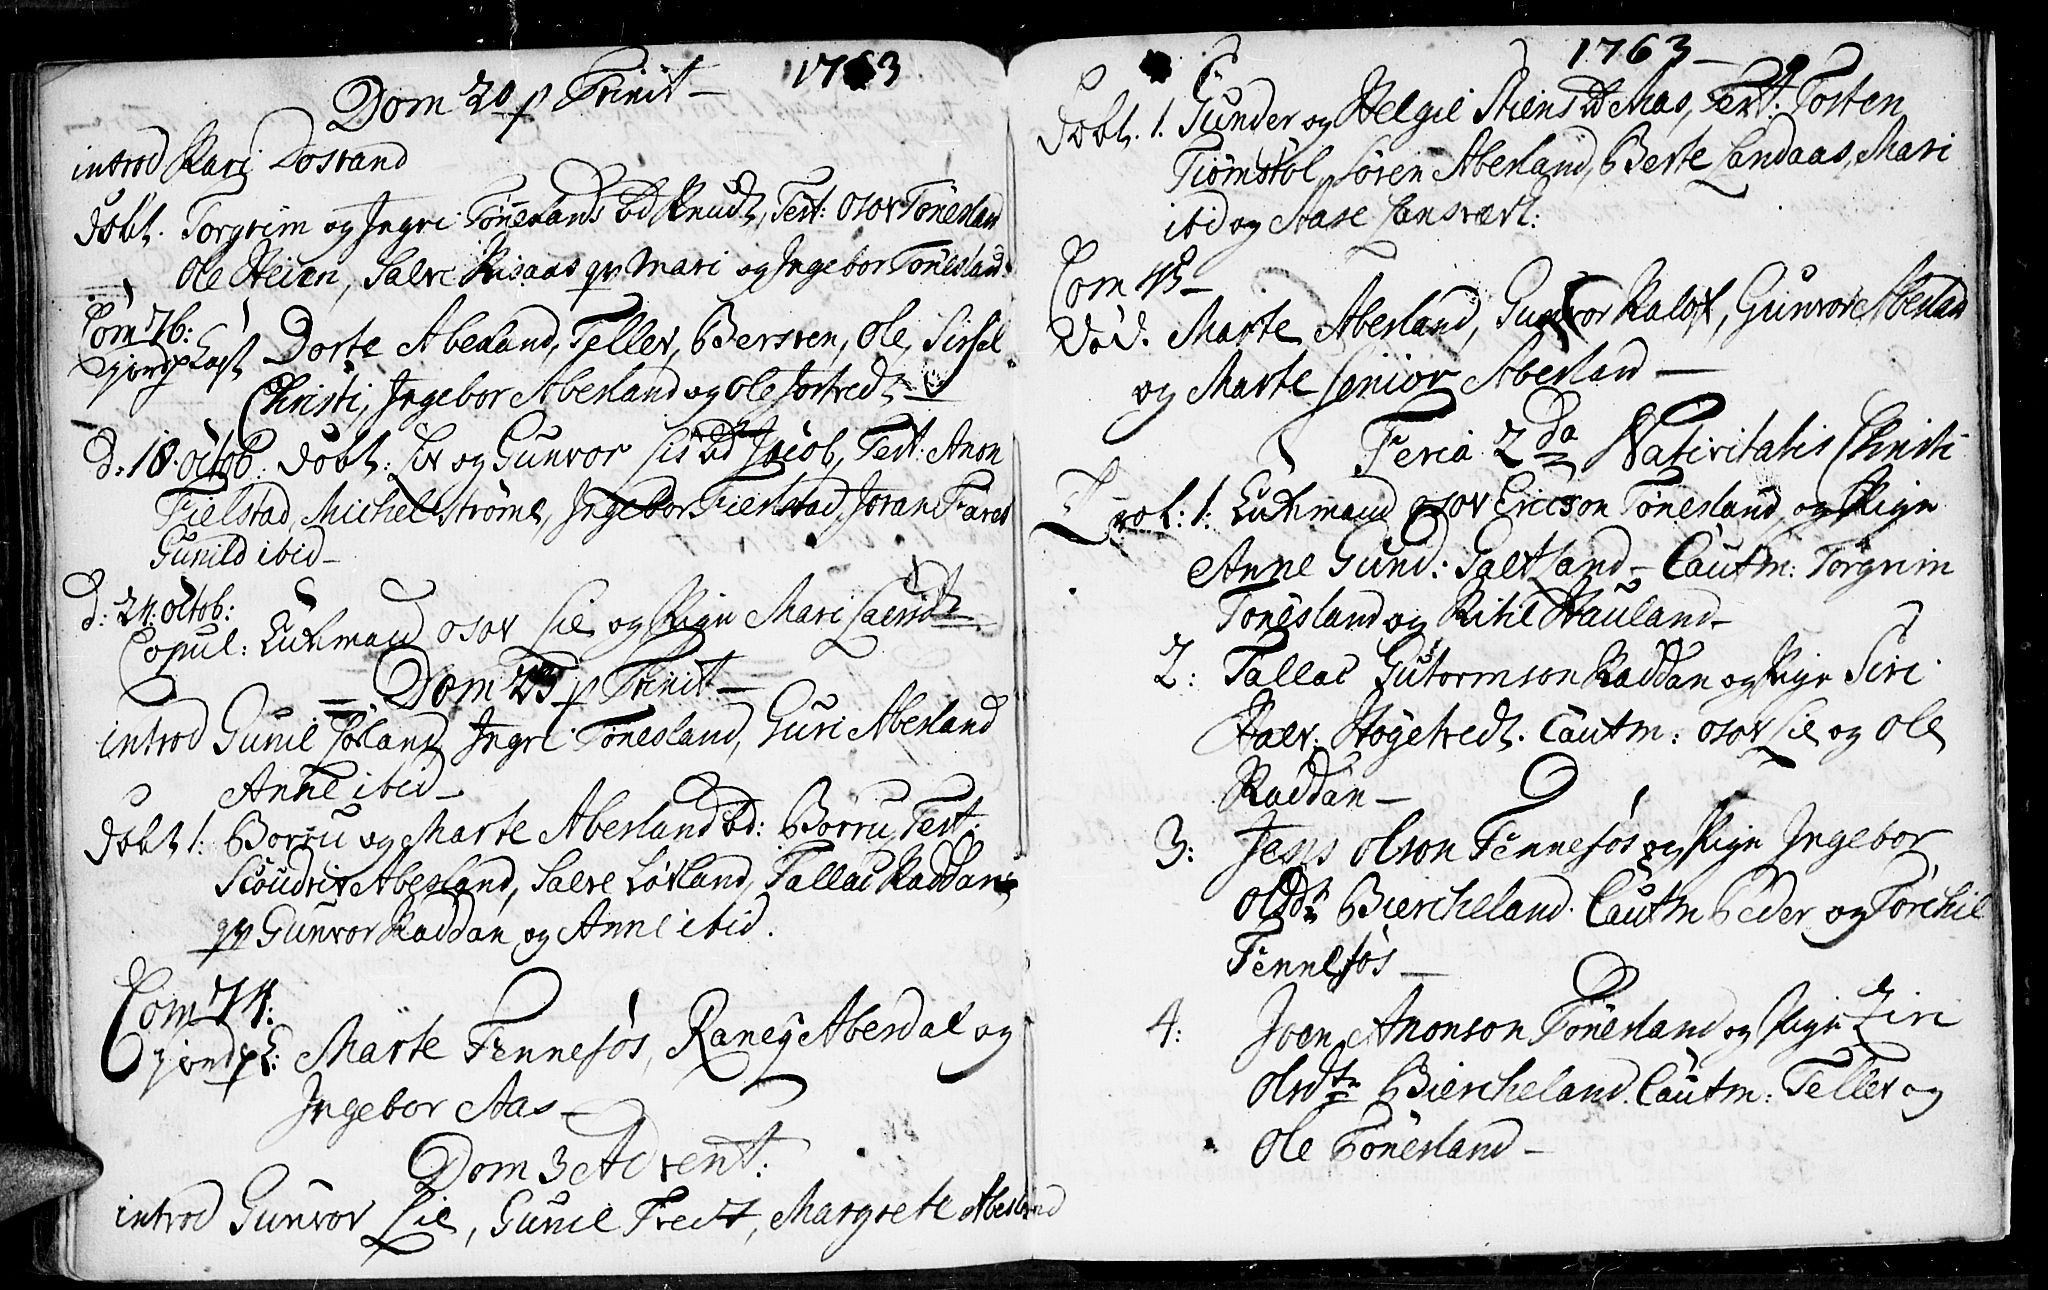 1763
Dom 20 p Trinit
introd Kari Dosrand
Døbt. Torgrim og Ingri Tönneslands bd Knud, Test: Osov Tönesland
Ole Heien, Salve Risaas qv Mari og Ingebor Tönesland
Com 76:
Dorte Abesland, Tellev, Bersven, Ole, Sissel
Christi, Ingebor Abesland og Ole
d. 18 octob: Døbt: Liv og Gunvor Lies bd Jacob, Test: Anon
Fielstad, Michel Ströml, Ingebor Fielstad, Joran
Gunild ibid
d: 24 octob:
Copul: Eukmand Osov Lie og Pige Mari
Dom 23 p Trinit
introd Gunil Ingri Tönesland, Guri Abesland
Anne ibid
Døbt 1: Borru og Marte Abesland bd: Borru, Test:
Abesland, Salve Lövland, Tallac Raddan
qv Gunvor Raddan, og Anne ibid.
Com 74:
Marte Fennefös, Raney Abesdal og
Ingebor Aas
Dom 3 Advent:
introd Gunvor Lie, Gunil Tvedt, Margrete Abesland
1763
Døbt. 1. Gunder og Helgie Stiens bd Mas, Test: Tosten
Tiömstöl, Sören Abesland, Berte Landaas, Mari
ibid og Aase
Com
Död. Marte Abesland, Gunvor Gunvor Abesland
og Marte Senior Abesland
Feria 2da Nativitatis Christi
Trol: 1: Eukmand Osov Ericson Tönesland og Pige
Anne Gund: Cautm: Torgrim
Tönesland og Kitil Hauland
2: Tallac Gutormson Raddan og Pige Siri
Halv. Högetvedt. Cautm: Osov Lie og Ole
Raddan
3: Jens Olson Fennefös og Pige Ingebor
Olsdtr Biercheland. Cautm Peder og Törchil
Fennefös
4: Joen Anonson Tönesland og Pige Siri
Olsdtr Biercheland. Cautm: Tellev og
Ole Tönesland